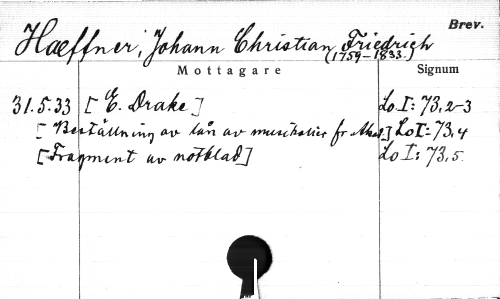 Brev.
Haeffner, Johann Christian Friedrich
(1759-1833.)
Mottagare Signum
31.5.33 [E. Drake] Lo I: 73,2-3
[Beställning av lån av musikalier fr Akad.] Lo I: 73,4
[Fragment av notblad] Lo I: 73,5.